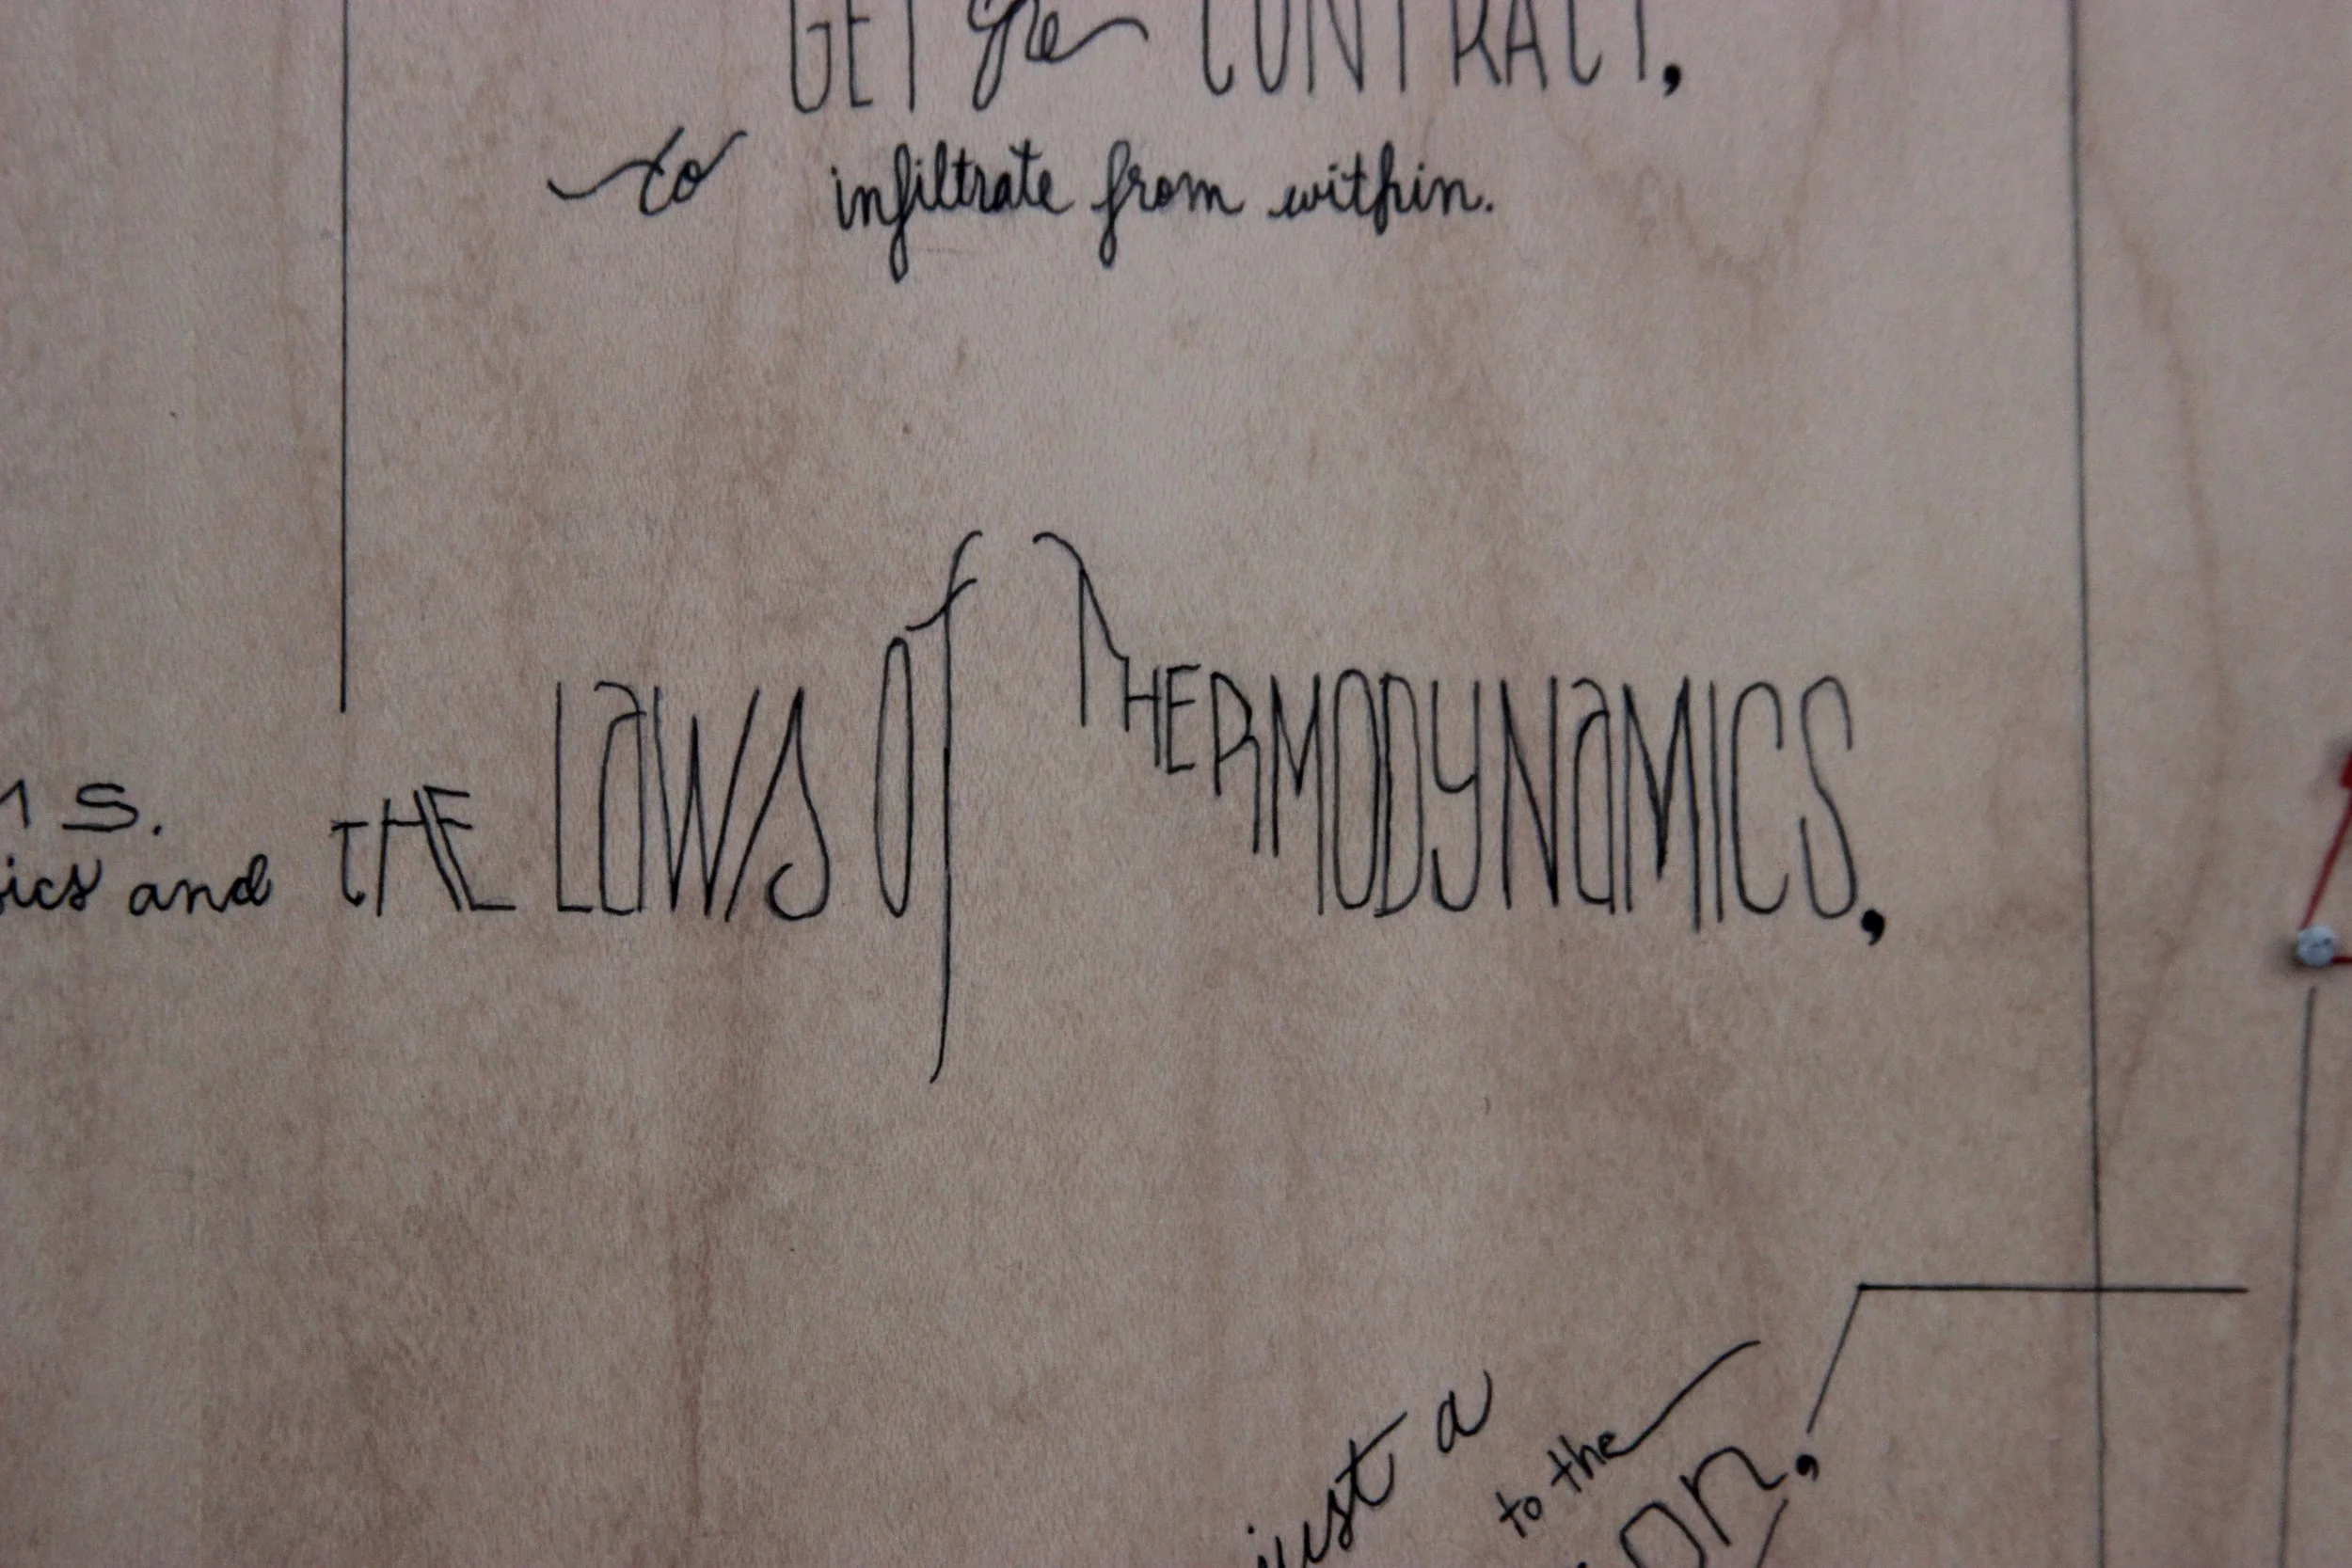 GET the CONTRACT,
to infiltrate from within.
s.
and THE LaWs Of THERMODYNaMICS,
just a
to the